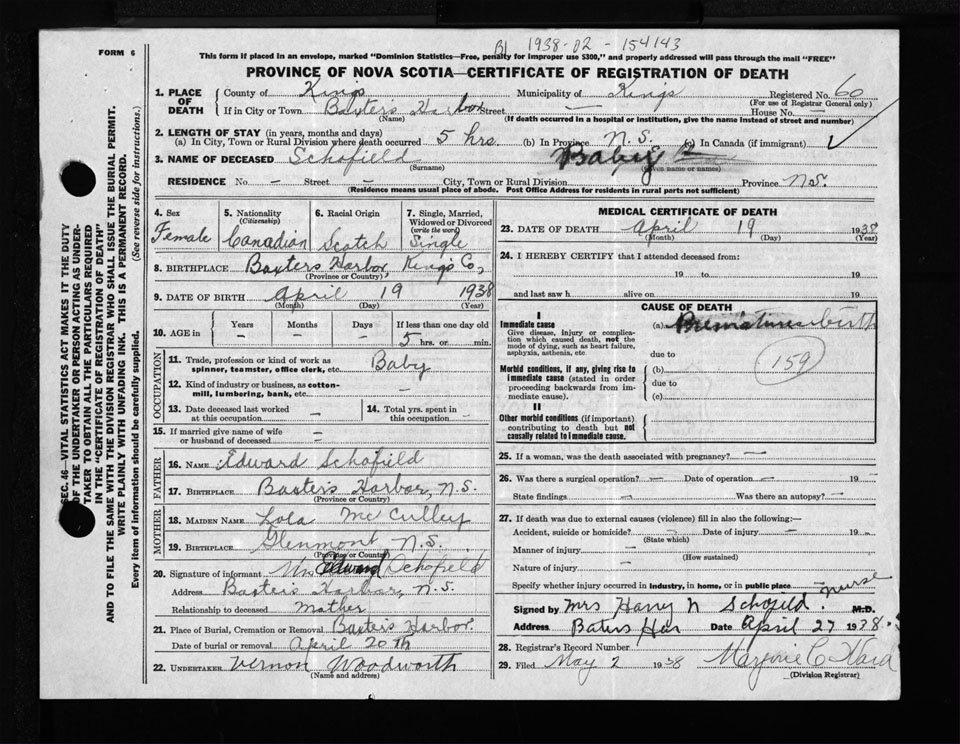 FORM 6
B 1938-02-154143
This form if placed in an envelope, marked "Dominion Statistics—Free, penalty for improper use $300," and properly addressed will pass through the mail "FREE"
PROVINCE OF NOVA SCOTIA—CERTIFICATE OF REGISTRATION OF DEATH
SEC. 46—VITAL STATISTICS ACT MAKES IT THE DUTY
OF THE UNDERTAKER OR PERSON ACTING AS UNDER-
TAKER TO OBTAIN ALL THE PARTICULARS REQUIRED
IN THE "CERTIFICATE OF REGISTRATION OF DEATH"
AND TO FILE THE SAME WITH THE DIVISION REGISTRAR WHO SHALL ISSUE THE BURIAL PERMIT.
WRITE PLAINLY WITH UNFADING INK. THIS IS A PERMANENT RECORD.
Every item of information should be carefully supplied. (See reverse side for instructions.)
1. PLACE OF DEATH County of Kings Municipality of Kings Registered No. 60
(For use of Registrar General only)
If in City or Town Baxters Harbor Street — House No. —
(Name) (If death occurred in a hospital or institution, give the name instead of street and number)
2. LENGTH OF STAY (in years, months and days)
(a) In City, Town or Rural Division where death occurred 5 hrs. (b) In Province N.S. (c) In Canada (if immigrant)
3. NAME OF DECEASED Schofield Baby
(Surname) (Given name or names)
RESIDENCE No. — Street — City, Town or Rural Division Province N.S.
(Residence means usual place of abode. Post Office Address for residents in rural parts not sufficient)
4. Sex Female
5. Nationality (Citizenship) Canadian
6. Racial Origin Scotch
7. Single, Married, Widowed or Divorced (write the word) Single
8. BIRTHPLACE Baxters Harbor, Kings Co,
(Province or Country)
9. DATE OF BIRTH April 19 1938
(Month) (Day) (Year)
10. AGE in Years — Months — Days — If less than one day old 5 hrs. or min.
OCCUPATION
11. Trade, profession or kind of work as spinner, teamster, office clerk, etc. Baby
12. Kind of industry or business, as cotton-mill, lumbering, bank, etc. —
13. Date deceased last worked at this occupation —
14. Total yrs. spent in this occupation —
15. If married give name of wife or husband of deceased —
FATHER
16. NAME Edward Schofield
17. BIRTHPLACE Baxters Harbor, N.S.
(Province or Country)
MOTHER
18. MAIDEN NAME Lola McCulley
19. BIRTHPLACE Glenmont N.S.
(Province or Country)
20. Signature of informant Mrs Edward Schofield
Address Baxters Harbor, N.S.
Relationship to deceased Mother
21. Place of Burial, Cremation or Removal Baxters Harbor.
Date of burial or removal April 20th
22. UNDERTAKER Vernon Woodworth
(Name and address)
MEDICAL CERTIFICATE OF DEATH
23. DATE OF DEATH April 19 1938
(Month) (Day) (Year)
24. I HEREBY CERTIFY that I attended deceased from:
19 to 19
and last saw h alive on 19
CAUSE OF DEATH
I
Immediate cause (a) Premature birth
Give disease, injury or complica-
tion which caused death, not the
mode of dying, such as heart failure,
asphyxia, asthenia, etc.
due to
159
Morbid conditions, if any, giving rise to (b)
immediate cause (stated in order due to
proceeding backwards from im-
mediate cause). (c)
II
Other morbid conditions (if important)
contributing to death but not
causally related to immediate cause.
25. If a woman, was the death associated with pregnancy? —
26. Was there a surgical operation? — Date of operation — 19
State findings — Was there an autopsy? —
27. If death was due to external causes (violence) fill in also the following:—
Accident, suicide or homicide? — Date of injury — 19 —
(State which)
Manner of injury —
(How sustained)
Nature of injury —
Specify whether injury occurred in industry, in home, or in public place
Signed by Mrs Harry N Schofield. nurse M.D.
Address Baters Har Date April 27 1938
28. Registrar's Record Number
29. Filed May 2 1938 Marjorie C Ward
(Division Registrar)